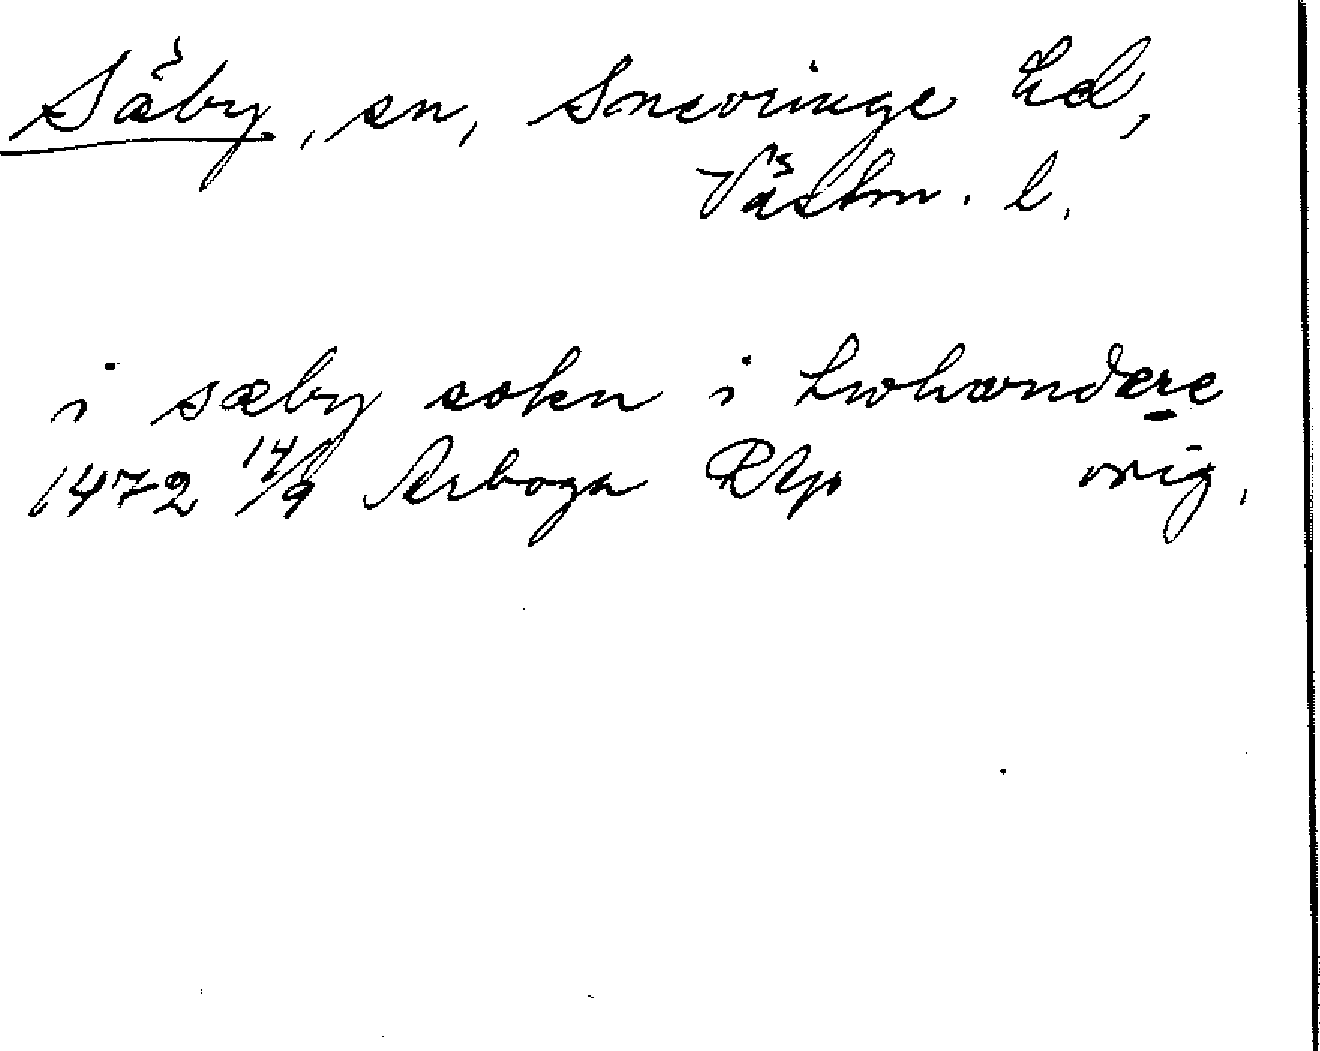 Säby, sn, Snevringe hd,
Västm. l.
i sæby sokn i twhwndære
1472 14/9 Arboga RAp orig.